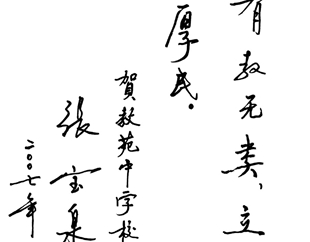 有教无类、立
厚民。
賀教苑中学校
張宝泉
二〇〇七年